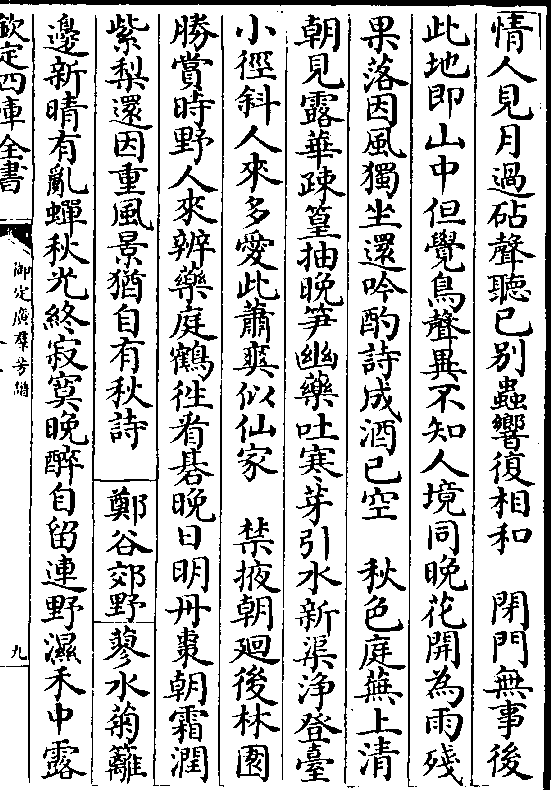 情人見月過砧聲聽已別蟲響復相和　閉門無事後
此地即山中但覺鳥聲異不知人境同晚花開為雨殘
果落因風獨坐還吟酌詩成酒已空　秋色庭蕪上清
朝見露華疎篁抽晚笋幽藥吐寒芽引水新渠淨登臺
小徑斜人來多愛此蕭爽似仙家　禁掖朝廻後林園
勝賞時野人來辨藥庭鶴往看碁晚日明丹棗朝霜潤
紫梨還因重風景猶自有秋詩　鄭谷郊野蓼水菊籬
邊新晴有亂蟬秋光終寂寞晚醉自留連野濕禾中露
欽定四庫全書
御定廣羣芳譜
九